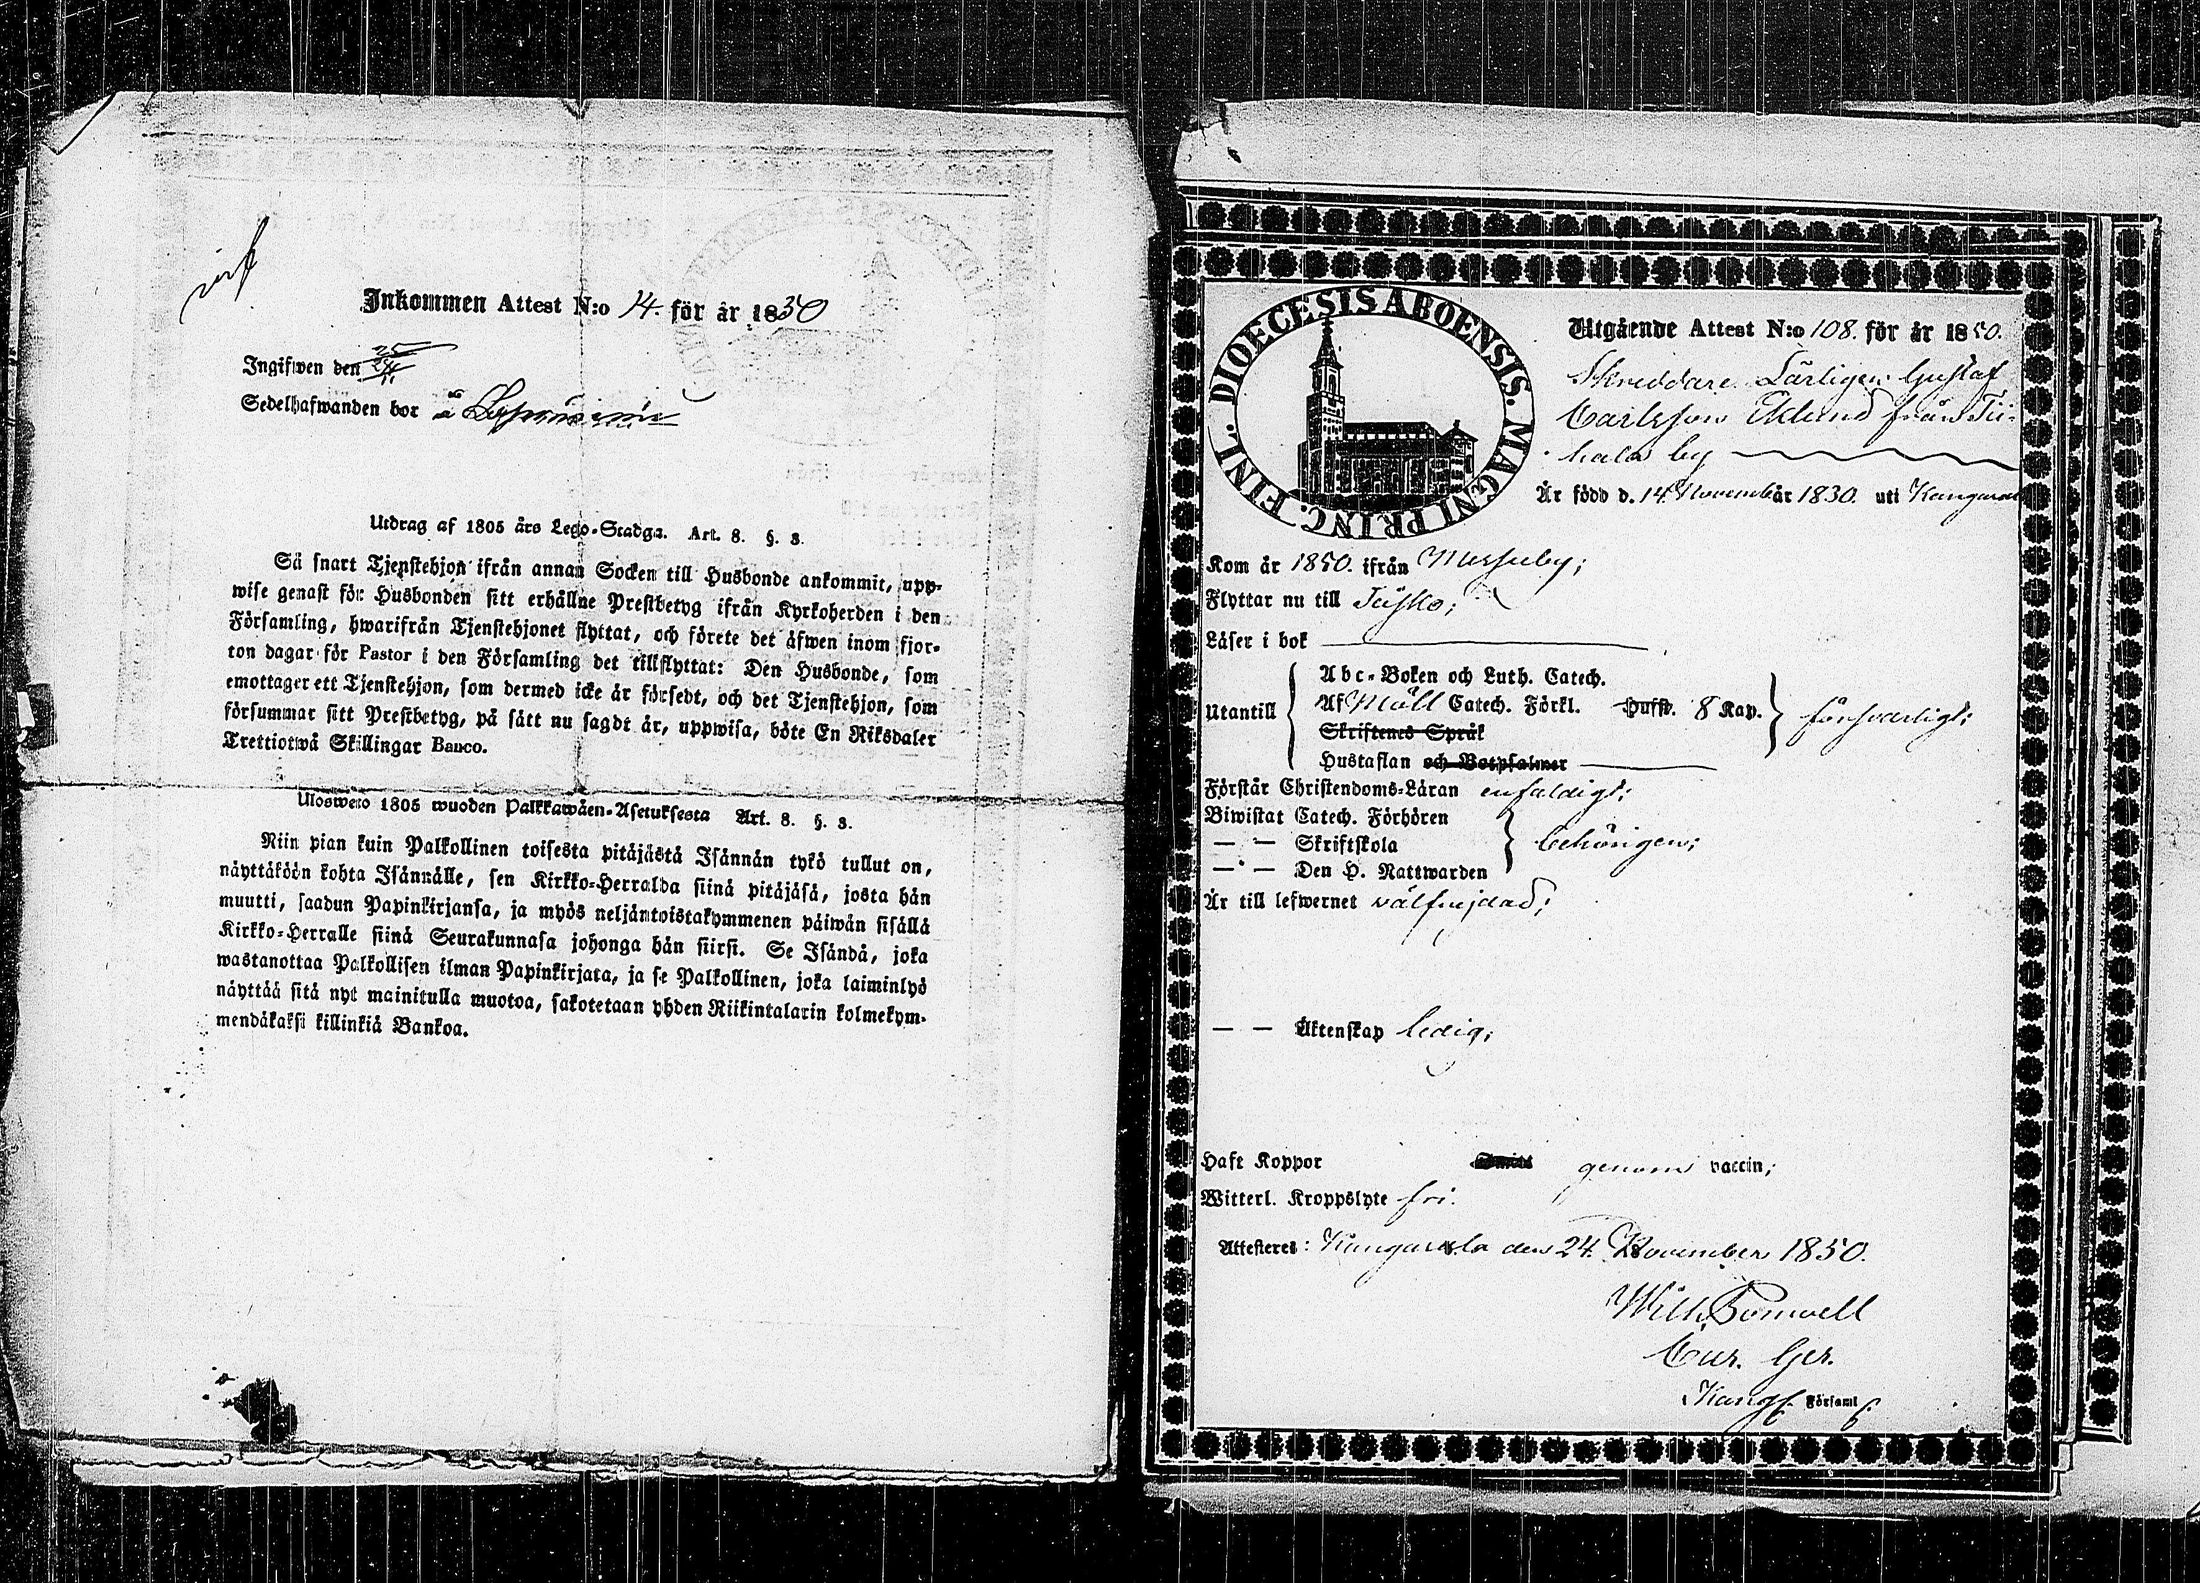 Inkommen Attest N:o 14. för år 1850
Ingifwen den
Sedelhafwanden bor å
Utdrag af 1805 års Lego-Stadga. Art. 8. §. 3.
Så snart Tjenstehjon ifrån annan Socken till Husbonde ankommit, upp-
wise genast för Husbonden sitt erhållne Prestbetyg ifrån Kyrkoherden i den
Församling, hwarifrån Tjenstehjonet flyttat, och förete det äfwen inom fjor-
ton dagar för Pastor i den Församling det tillflyttat: Den Husbonde, som
emottager ett Tjenstehjon, som dermed icke är försedt, och det Tjenstehjon, som
försummar sitt Prestbetyg, på sätt nu sagdt är, uppwisa, böte En Riksdaler
Trettiotwå Skillingar Banco.
Ulosweto 1805 wuoden Palkkawäen-Asetuksesta Art. 8. §. 3.
Niin pian kuin Palkollinen toisesta pitäjästä Isännän tykö tullut on,
näyttäköön kohta Isännälle, sen Kirkko-Herralda siinä pitäjäsä, josta hän
muutti, saadun Papinkirjansa, ja myös neljäntoistakymmenen päiwän sisällä
Kirkko-Herralle siinä Seurakunnasa johonga hän siirsi. Se Isändä, joka
wastanottaa Palkollisen ilman Papinkirjata, ja se Palkollinen, joka laiminlyö
näyttää sitä nyt mainitulla muotoa, sakotetaan yhden Riikintalarin kolmekym-
mendäkaksi killinkiä Bankoa.
DIOECESIS ABOENSIS. MAGNI PRINC. FINL.
Utgående Attest N:o 108. för år 1850.
Skreddare Lärlingen Gustaf
Carlsson Eklund från Tii-
hala by
Är född d. 14 Novemb år 1830. uti Kangasala
Kom år 1850. ifrån Messuby;
Flyttar nu till
Läser i bok
Abc-Boken och Luth. Catech.
Utantill Af Möll Catech. Förkl. Hufst. 8 Kap. försvarligt;
Skriftenes Språk
Hustaflan och Botpsalmer
Förstår Christendoms-Läran enfaldigt;
Biwistat Catech. Förhören
— — Skriftskola behörigen;
— — Den H. Nattwarden
Är till lefwernet välfrejdad;
— — Äktenskap ledig;
Haft Koppor genom vaccin;
Witterl. Kroppslyte fri.
Attesteres: Kangasala den 24 November 1850.
Wilh.
Cur. Ger.
Kang. Församl